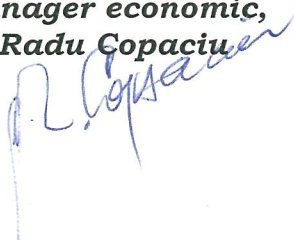 nager economic,
Radu Copaciu
R. Copaciu